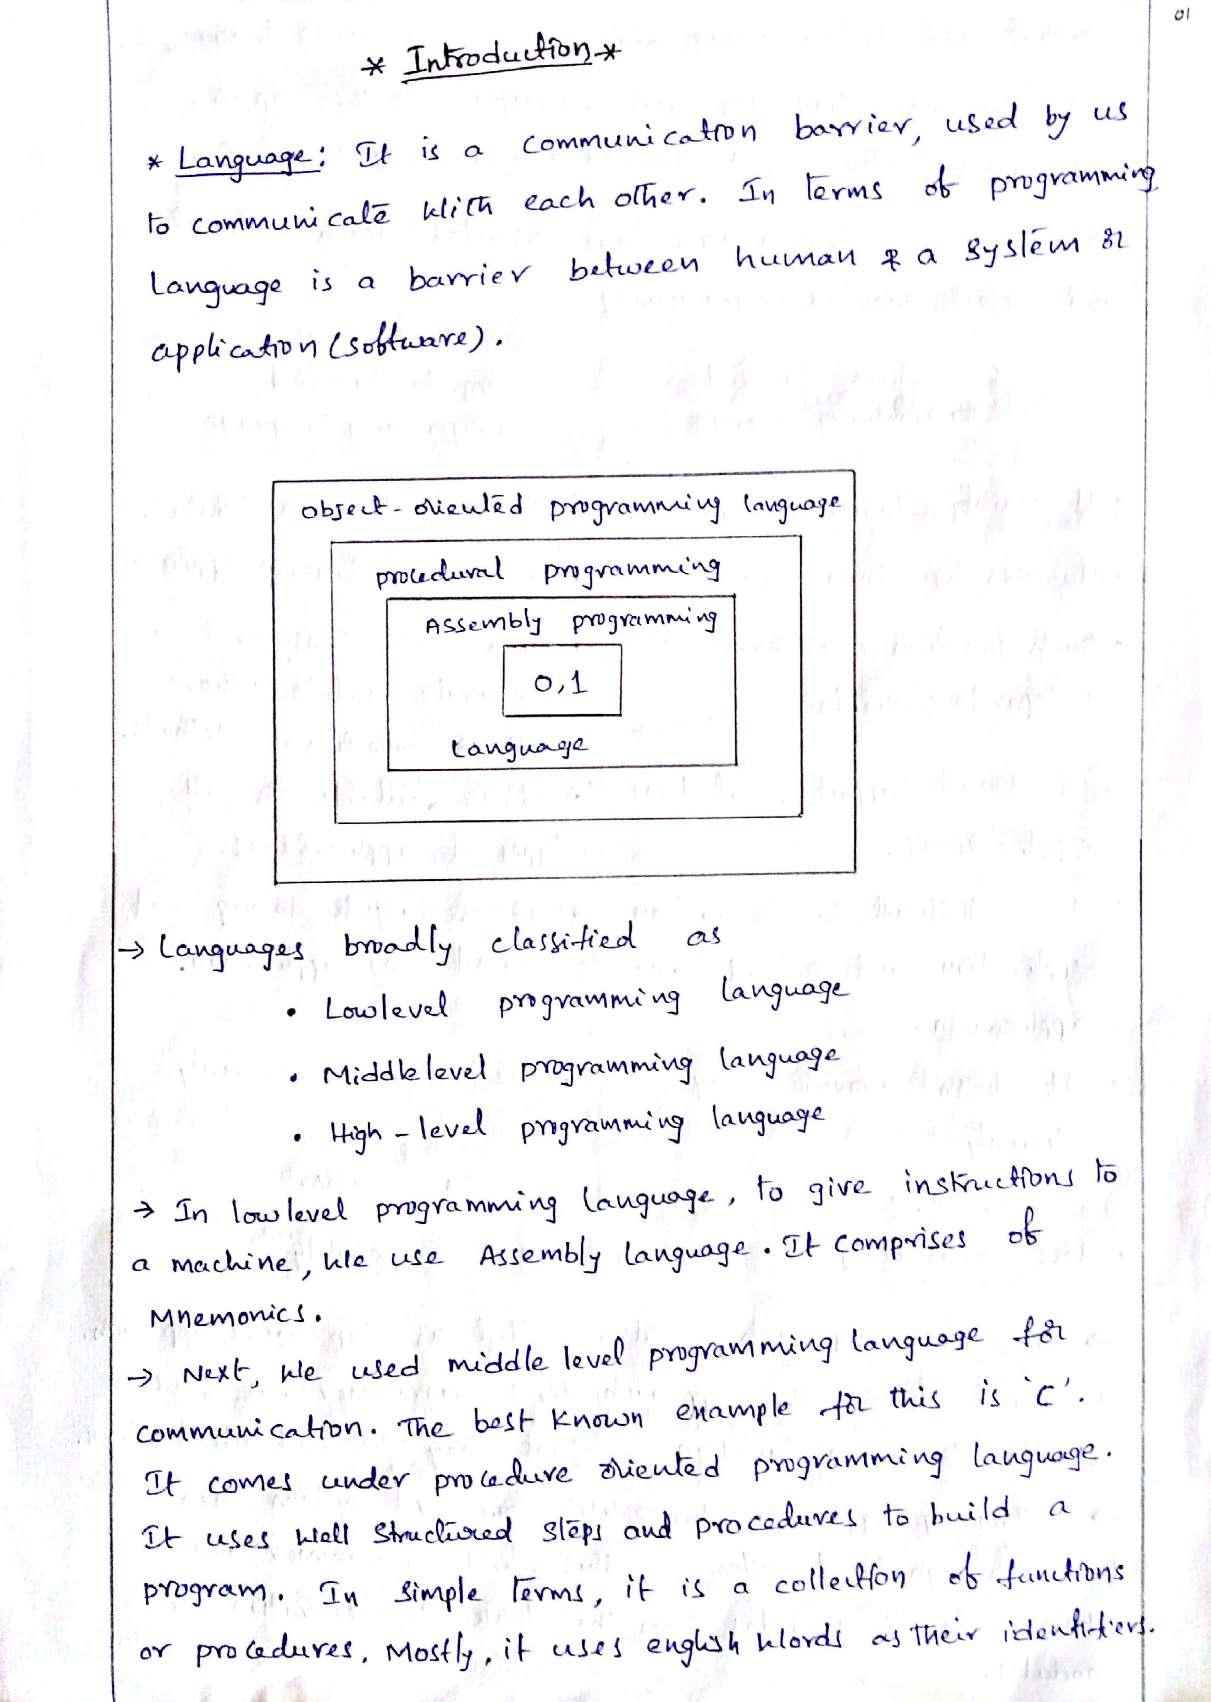 01
* Introduction *
* Language: It is a communication barrier, used by us
to communicate with each other. In terms of programming
language is a barrier between human & a system or
application (software).
object-oriented programming language
procedural programming
Assembly programming
0,1
language
→ Languages broadly classified as
• Lowlevel programming language
• Middle level programming language
• High-level programming language
→ In low level programming language, to give instructions to
a machine, we use Assembly language. It comprises of
Mnemonics.
→ Next, we used middle level programming language for
communication. The best known example for this is 'C'.
It comes under procedure oriented programming language.
It uses well structured steps and procedures to build a
program. In simple terms, it is a collection of functions
or procedures. Mostly, it uses english words as their identifiers.